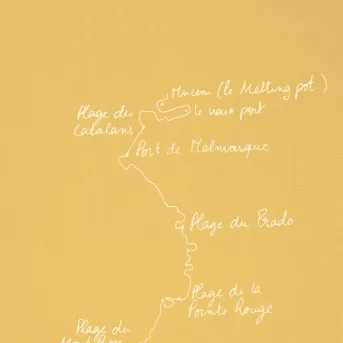 Mucem (le Melting pot)
le vieux port
Plage des
Catalans
Port de Malmousque
Plage du Prado
Plage de la
Pointe Rouge
Plage du
Mont Rose